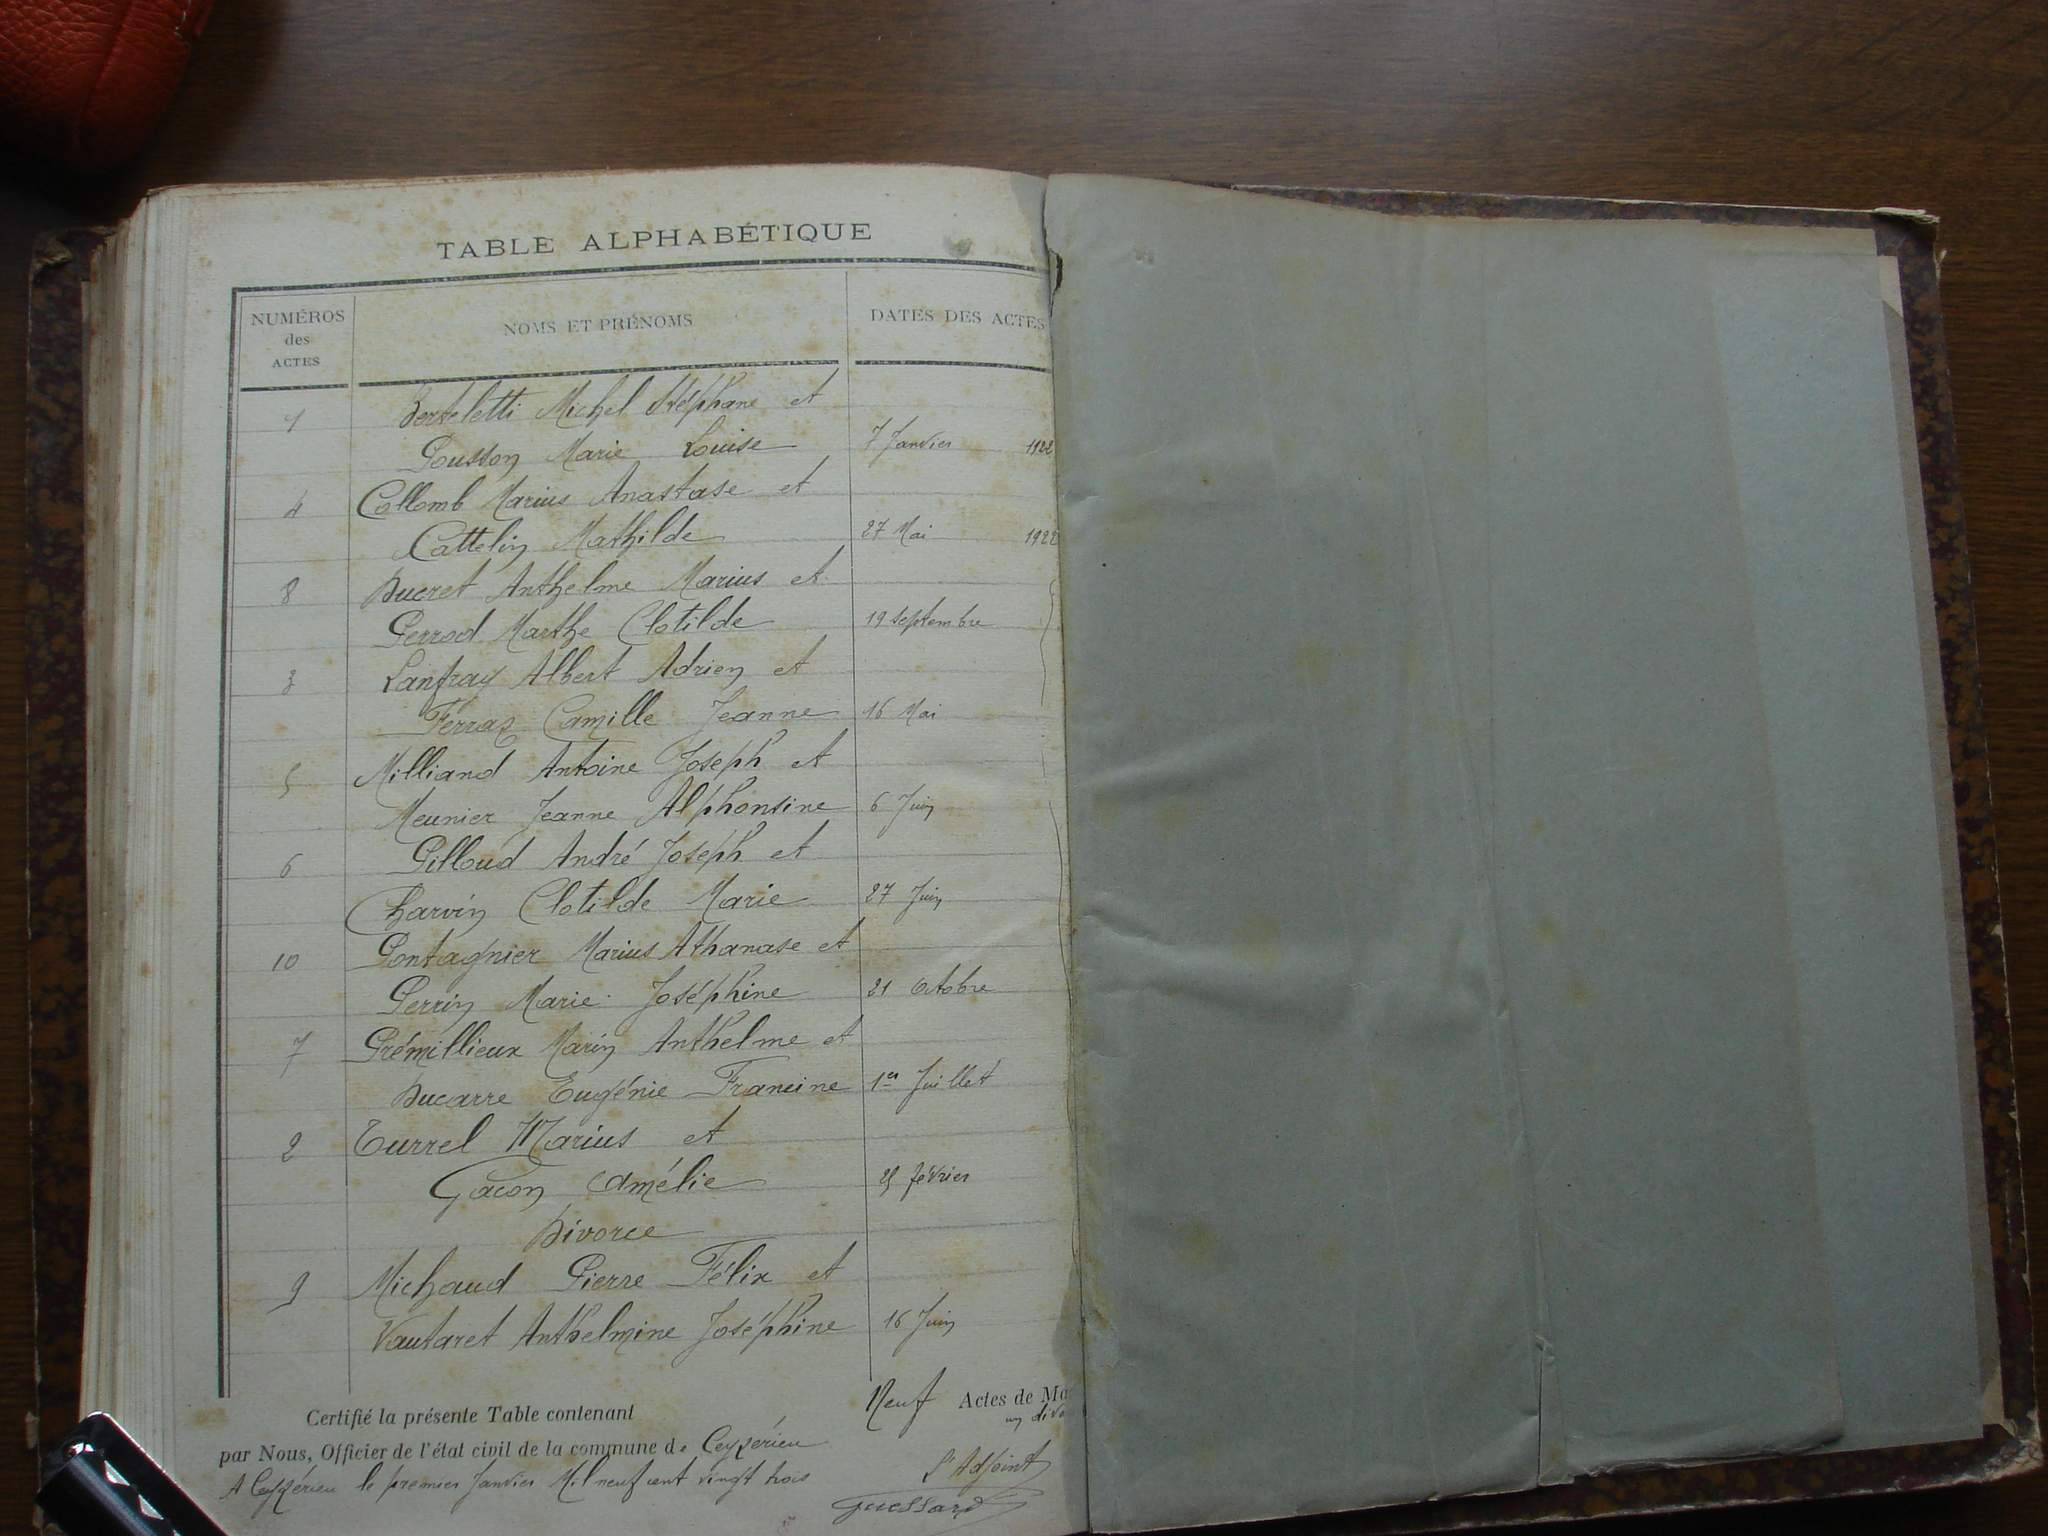 TABLE ALPHABÉTIQUE
NUMÉROS des ACTES
NOMS ET PRÉNOMS
DATES DES ACTES
1 Berteletti Michel Stéphane et
Pousson Marie Louise 7 Janvier 1922
4 Collomb Marius Anastase et
Cattelin Mathilde 27 Mai 1922
8 Ducret Anthelme Marius et
Perrod Marthe Clotilde 19 septembre
3 Lanfray Albert Adrien et
Ferraz Camille Jeanne 16 Mai
5 Milliand Antoine Joseph et
Meunier Jeanne Alphonsine 6 Juin
6 Pilloud André Joseph et
Charvin Clotilde Marie 27 Juin
10 Pontagnier Marius Athanase et
Perrin Marie Joséphine 21 Octobre
7 Prémillieux Marin Anthelme et
Ducarre Eugénie Francine 1er Juillet
2 Turrel Marius et
Gacon Amélie 25 février
Divorce
9 Michaud Pierre Félix et
Vautaret Anthelmine Joséphine 16 Juin
Certifié la présente Table contenant Neuf Actes de Ma
un divo
par Nous, Officier de l'état civil de la commune de Ceyzérieu
A Ceyzérieu le premier Janvier Mil neuf cent vingt trois
L'Adjoint
Guessard